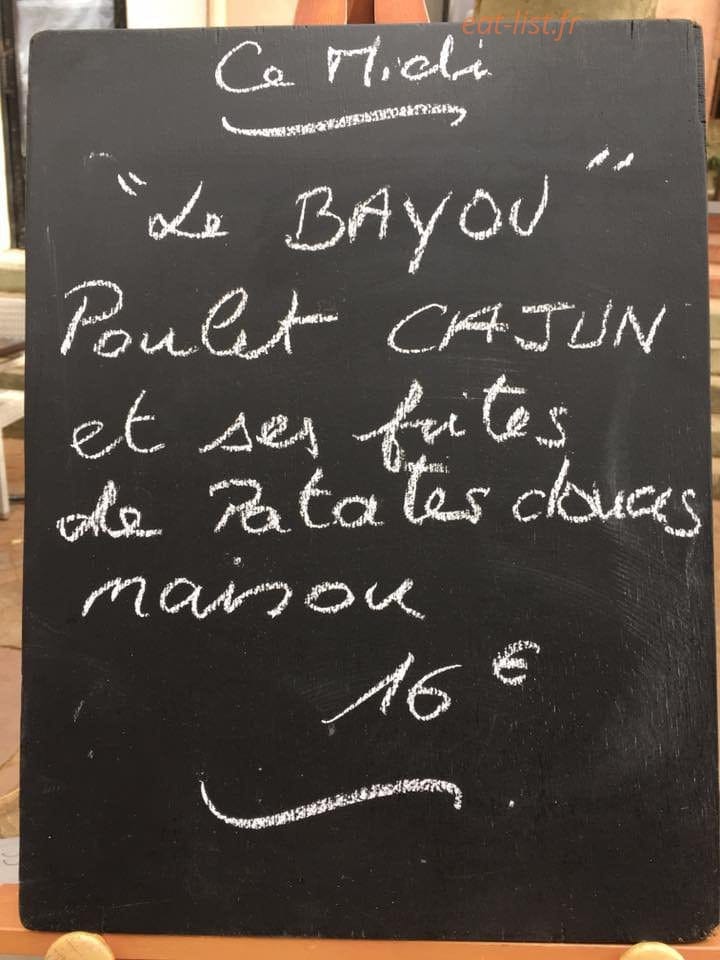 eat-list.fr
Ce Midi
"Le BAYOU"
Poulet CAJUN
et ses frites
de Patates douces
maison
16 €